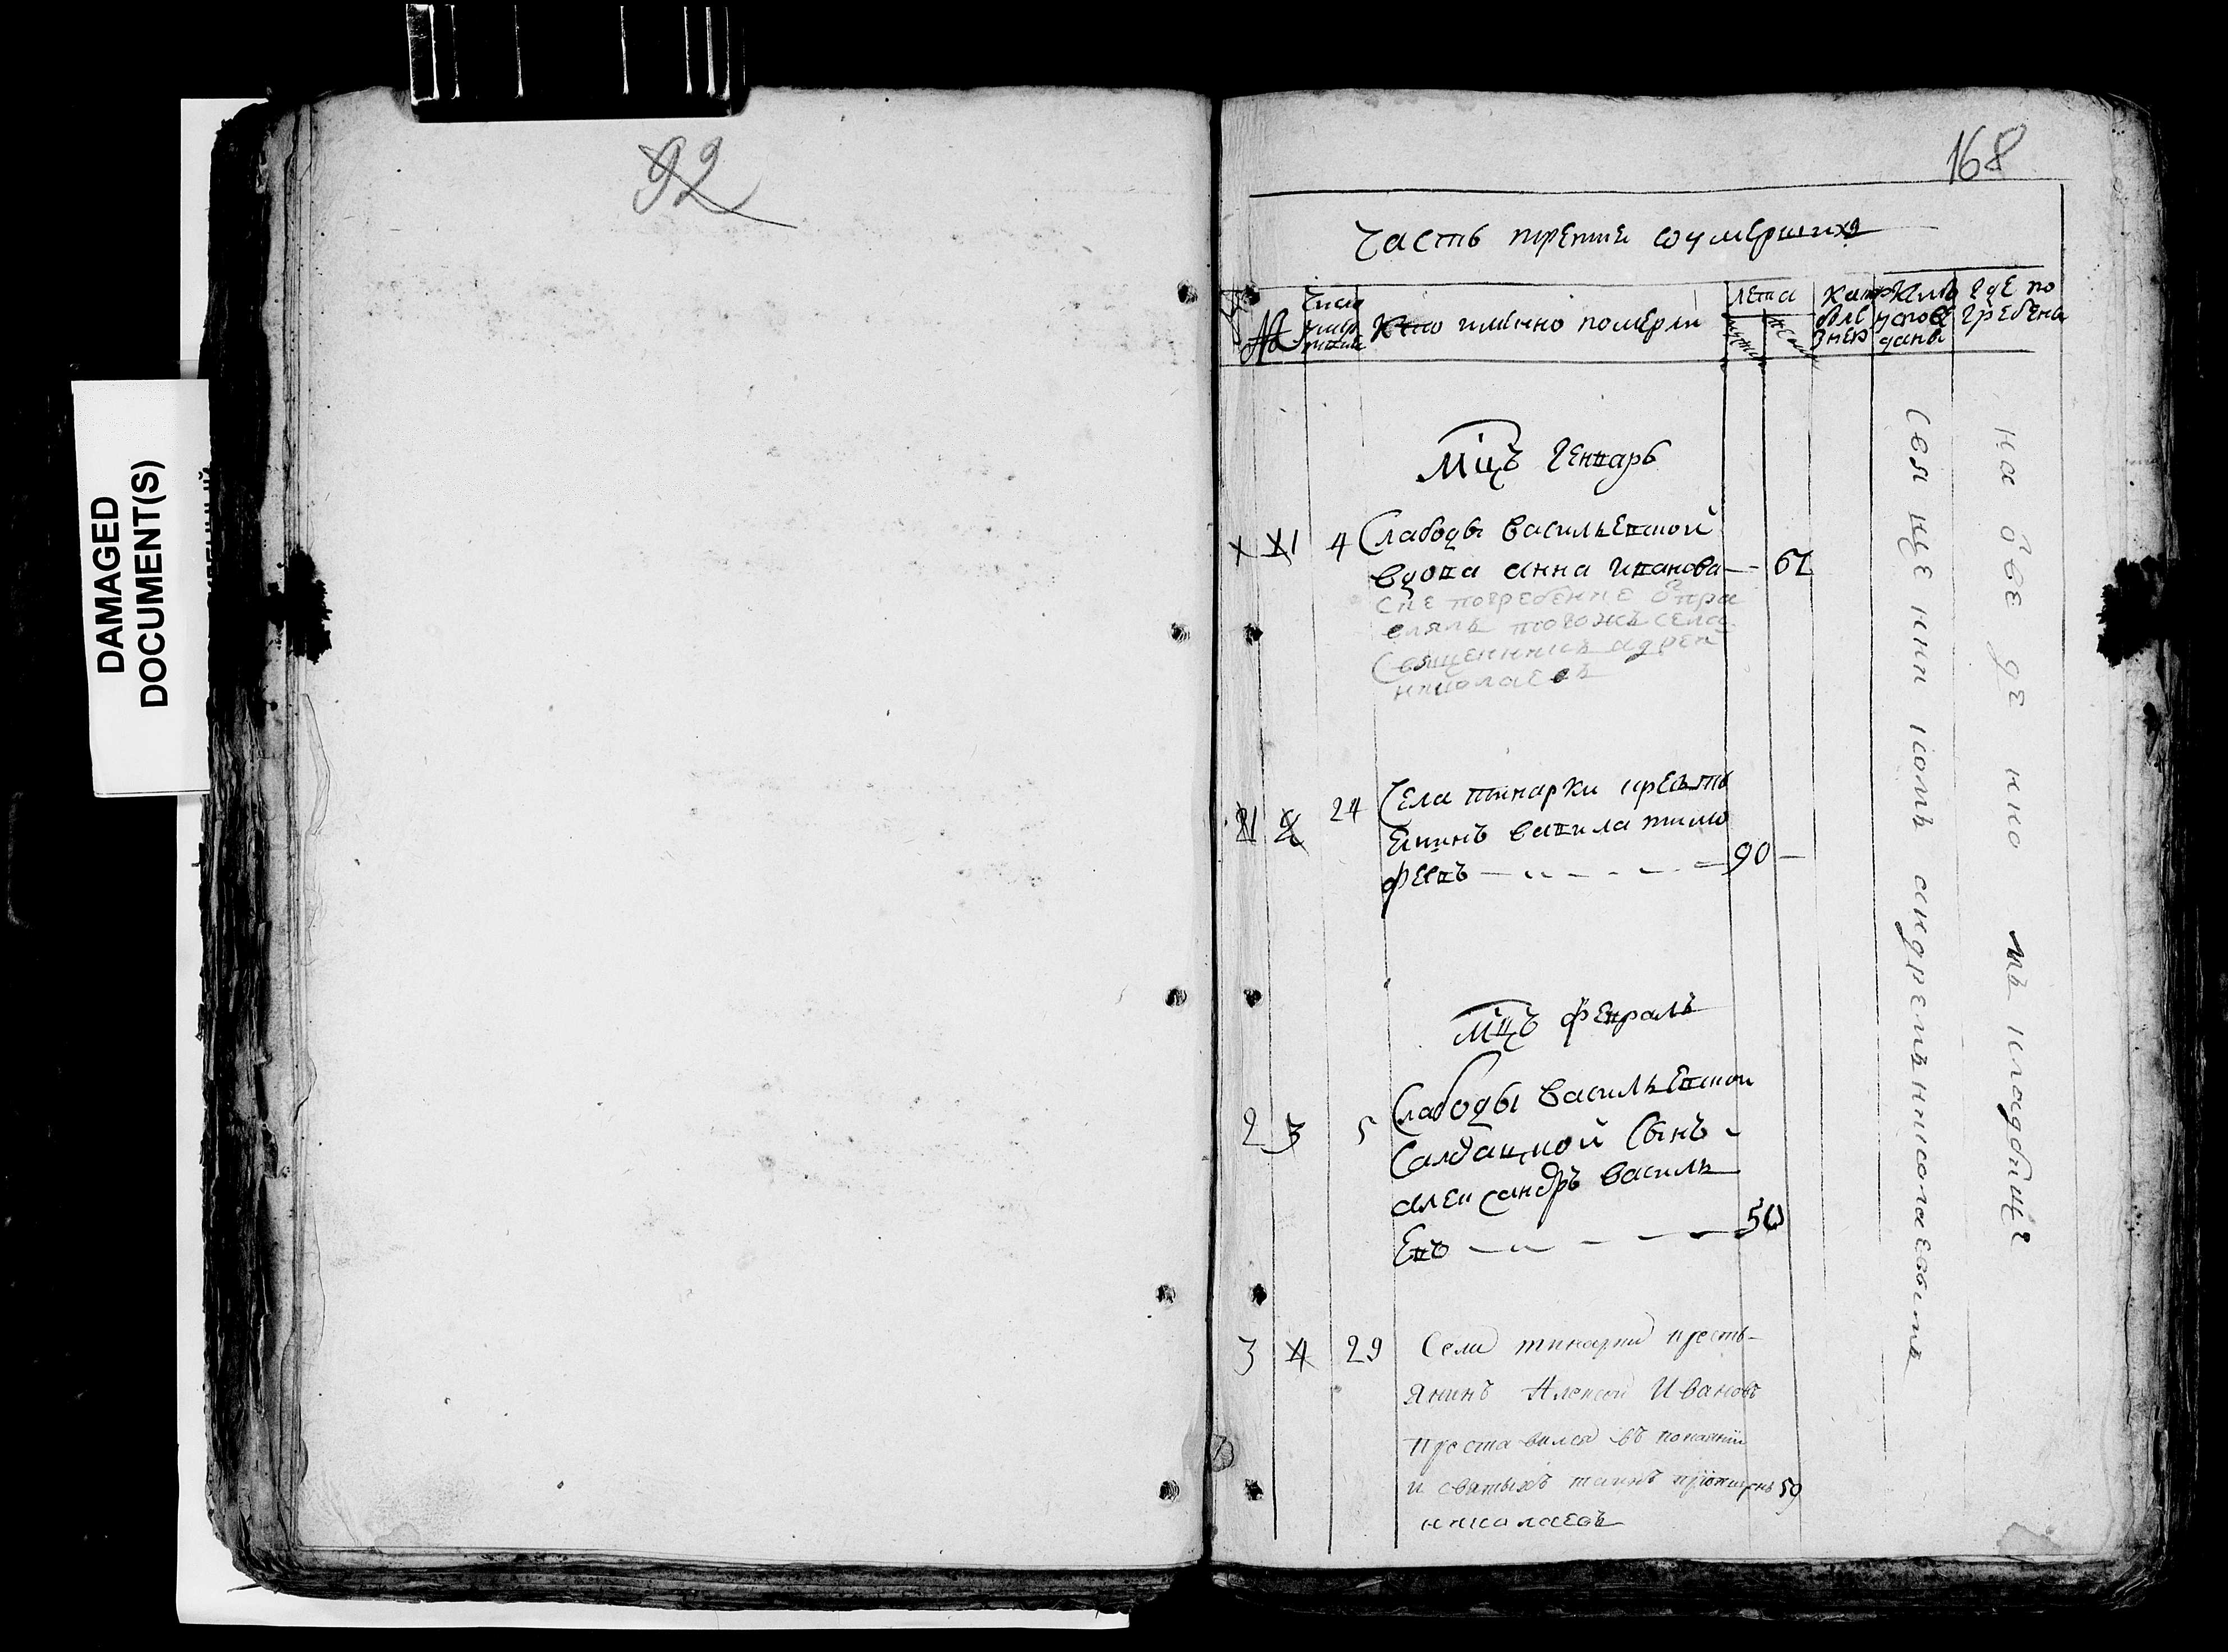 92
DAMAGED
DOCUMENT(S)
168
Часть третия о умершихъ
№
Число
Кто имено померли
лета
Кемъ
испове
даны
где по
гребены
Мцъ Генварь
1 4 Слабоды Васильевской
вдова анна иванова 67
сие погребение отпра
влялъ тогожъ села
Священникъ адреи
николаевъ
1 2 24 Села тинарки кресть
енинъ вавила тимо
феевъ 90
Мцъ Февраль
2 3 5 Слабоды Васильевской
Салдацкой Сынъ
александръ василь
евъ 50
3 4 29 Села тинарки кресть-
янинъ Алексей Ивановъ
преставился въ покаянии
и святыхъ таинъ 59
николаевъ
Священникомъ андреемъ николаевымъ
на обведенномъ кладбище